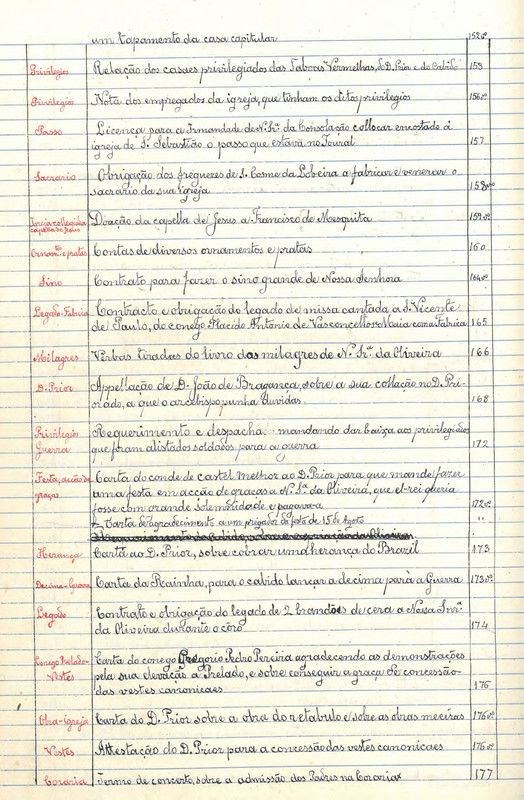 um tapamento da casa capitular 152vº
Privilegios Relação dos casaes privilegiados das Taboas Vermelhas, do D. Prior e do Cabido 153
Privilegios Nota dos empregados da igreja, que tinham os ditos privilegios 156vº
Passo Licença para a Irmandade de N. Srª da Consolação collocar encostado á
igreja de S. Sebastião o passo que estava no Toural 157
Sacrario Obrigação dos freguezes de S. Cosme da Lobeira a fabricar e venerar o
sacrario da sua igreja 158
Igreja collegiada
capella de Jesus Doação da capella de Jesus a Francisco de Mesquita 159vº
Ornamtos e pratas Contas de diversos ornamentos e pratas 160
Sino Contrato para fazer o sino grande de Nossa Senhora 164vº
Legado-Fabrica Contracto e obrigação do legado de missa cantada a S. Vicente
de Paulo, do conego Placido Antonio de Vasconcellos Maia com a Fabrica 165
Milagres Verbas tiradas do livro dos milagres de N. Srª da Oliveira 166
D. Prior Appellação de D. João de Bragança, sobre a sua collação no D. Pri-
orado, a que o arcebispo punha duvidas. 168
Privilegio Requerimento e despacho mandando dar baixa aos privilegiados
Guerra que foram alistados soldados para a guerra 172
Festa, acção de
graças Carta do conde de Castel Melhor ao D. Prior para que mande fazer
uma festa em acção de graças a N. Srª da Oliveira, que el-rei queria
fosse com grande solemnidade e pagava-a 172vº
Carta de agradecimento a um prégador da festa de 15 de Agosto "
Herança Carta ao D. Prior, sobre cobrar uma herança do Brazil 173
Decima-Guerra Carta da Rainha, para o cabido lançar a decima para a Guerra 173vº
Legado Contrato e obrigação do legado de 2 brandões de cera a Nossa Snrª
da Oliveira durante o côro 174
Conego Prelado-
Vestes Carta do conego Gregorio Pedro Pereira agradecendo as demonstrações
pela sua elevação a Prelado, e sobre conseguir a graça de concessão
das vestes canonicaes 175
Obra-igreja Carta do D. Prior sobre a obra do retabulo e sobre as obras meeiras 176vº
Vestes Attestação do D. Prior para a concessão das vestes canonicaes 176vº
Coraria Termo de concerto, sobre a admissão dos Padres na Coraria 177